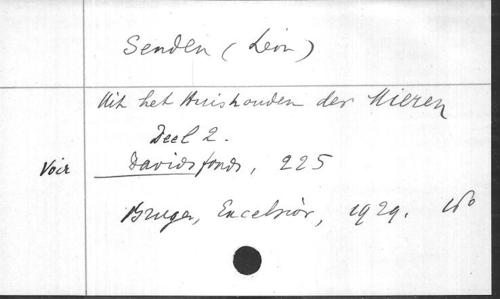 Senden (Léon)
Uit het Huishouden der Mieren
Deel 2.
Voir Davidsfonds, 225
Bruges, Excelsior, 1929. 16°